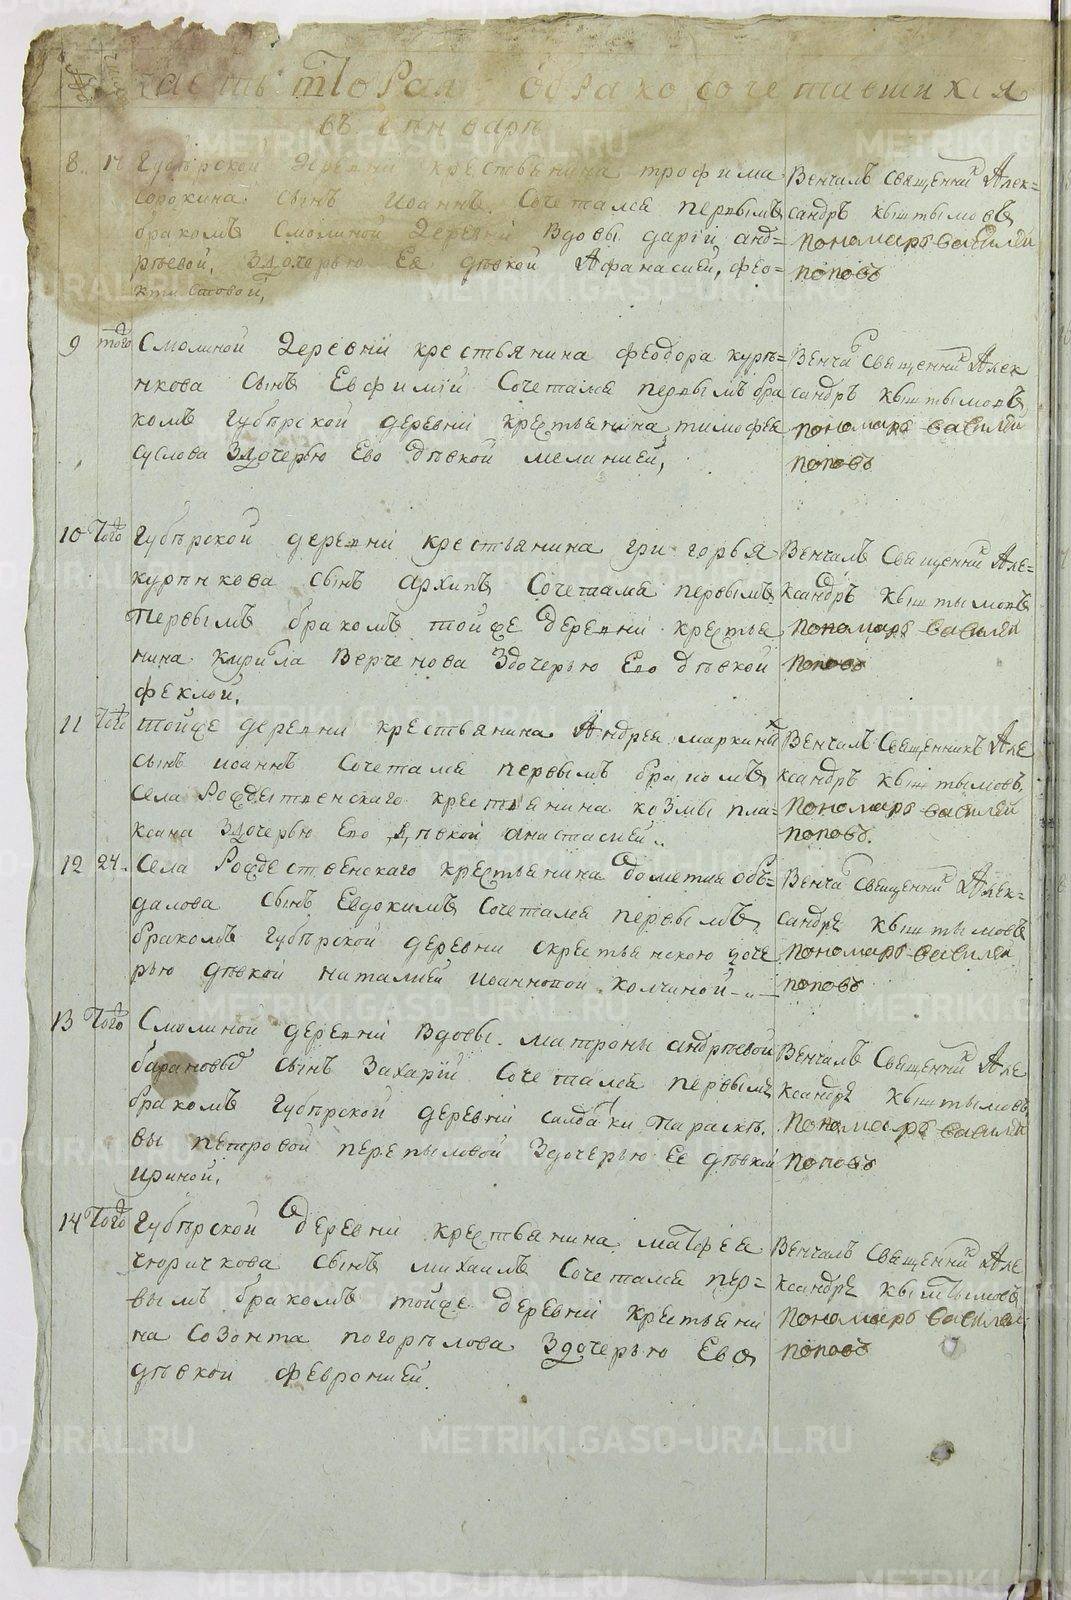 часть втораѧ о бракосочетавшихся
въ генваре
8 17 Губерской деревни крестьянина трофима
сорокина сынъ Иоаннъ Сочетался первымъ
бракомъ Смолиной деревни вдовы дарїи анд=
рѣевой, Здочерью Ее дѣвкой Афанасией, фео=
ктистовой,
Венчалъ священникъ Алек=
сандръ кыштымовъ
пономарь василей
поповъ
9 того Смолиной деревни крестьянина феодора курѣ=
нкова сынъ Евфимїй Сочетался первымъ бра
комъ Губѣрской деревни крестьянина тимофея
суслова Здочерью Ево дѣвкой меланией,
Венча священникъ Алек
сандръ кыштымовъ
пономарь василей
поповъ
10 того Губѣрской деревни крестьянина григорья
курѣнкова сынъ архипъ Сочетался первымъ
первымъ бракомъ тойже деревни крестья
нина кирила Верченова Здочерью Ево дѣвкой
феклой,
Венчалъ Священникъ Але=
ксандръ кыштымовъ
пономарь василей
поповъ
11 того тойже деревни крестьянина Андрея маркина
сынъ иоаннъ Сочетался первымъ бракомъ
села Рождественскаго крестьянина козмы пла=
ксина Здочерью Ево дѣвкой анастасией..
Венчалъ Священникъ Але
ксандръ кыштымовъ
Пономарь василей
поповъ.
12 24 Села Рождественскаго крестьянина дометия объ=
далова сынъ Евдокимъ Сочетался первымъ
бракомъ Губѣрской деревни скрестьянскою доче
рью дѣвкой наталией иоанновой колчиной
Венча священникъ Алек=
сандръ кыштымовъ
пономарь василей
поповъ
13 того Смолиной деревни вдовы матроны андрѣевой
барановы сынъ Захарїй Сочетался первымъ
бракомъ Губѣрской деревни салдатки параске=
вы петровой перепыловой Здочерью Ее дѣвкой
ириной,
Венчалъ Священникъ Але
ксандръ кыштымовъ
Пономарь василей
поповъ
14 того Губѣрской деревни крестьянина матфея
сынъ михаилъ Сочетался пер=
вымъ бракомъ тойже деревни крестьяни
на Созонта погорѣлова Здочерью Ево
дѣвкой февронией.
Венчалъ Священникъ Але
ксандръ кыштымовъ
Пономарь василей
поповъ
METRIKI.GASO-URAL.RU